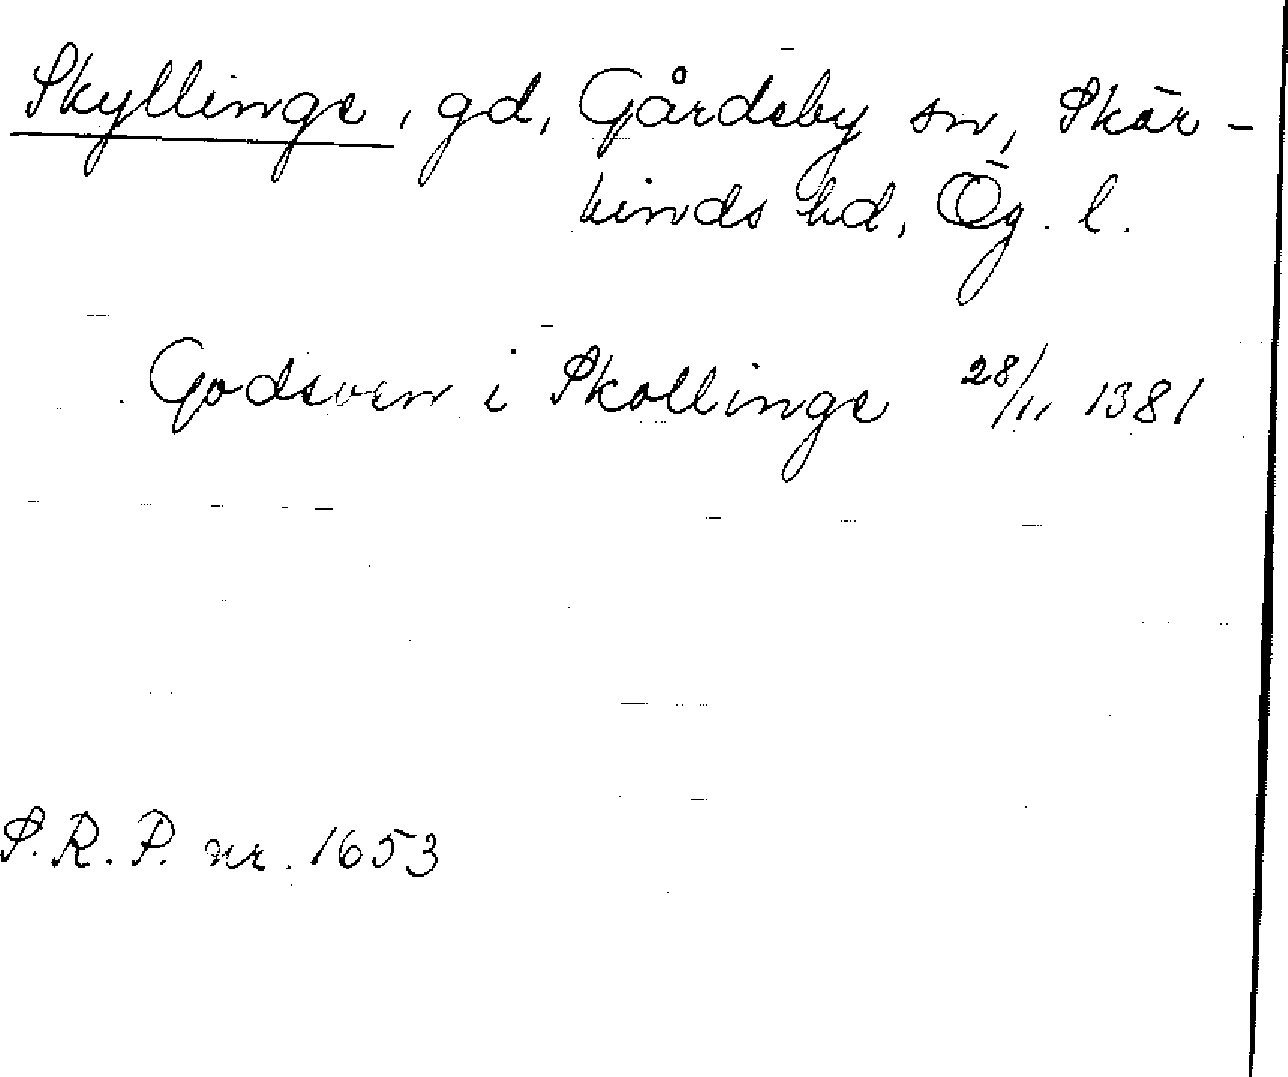 Skyllinge, gd, Gårdeby sn, Skär-
kinds hd, Ög. l.
Godsven i Skollinge 28/11 1381
S.R.P. nr. 1653